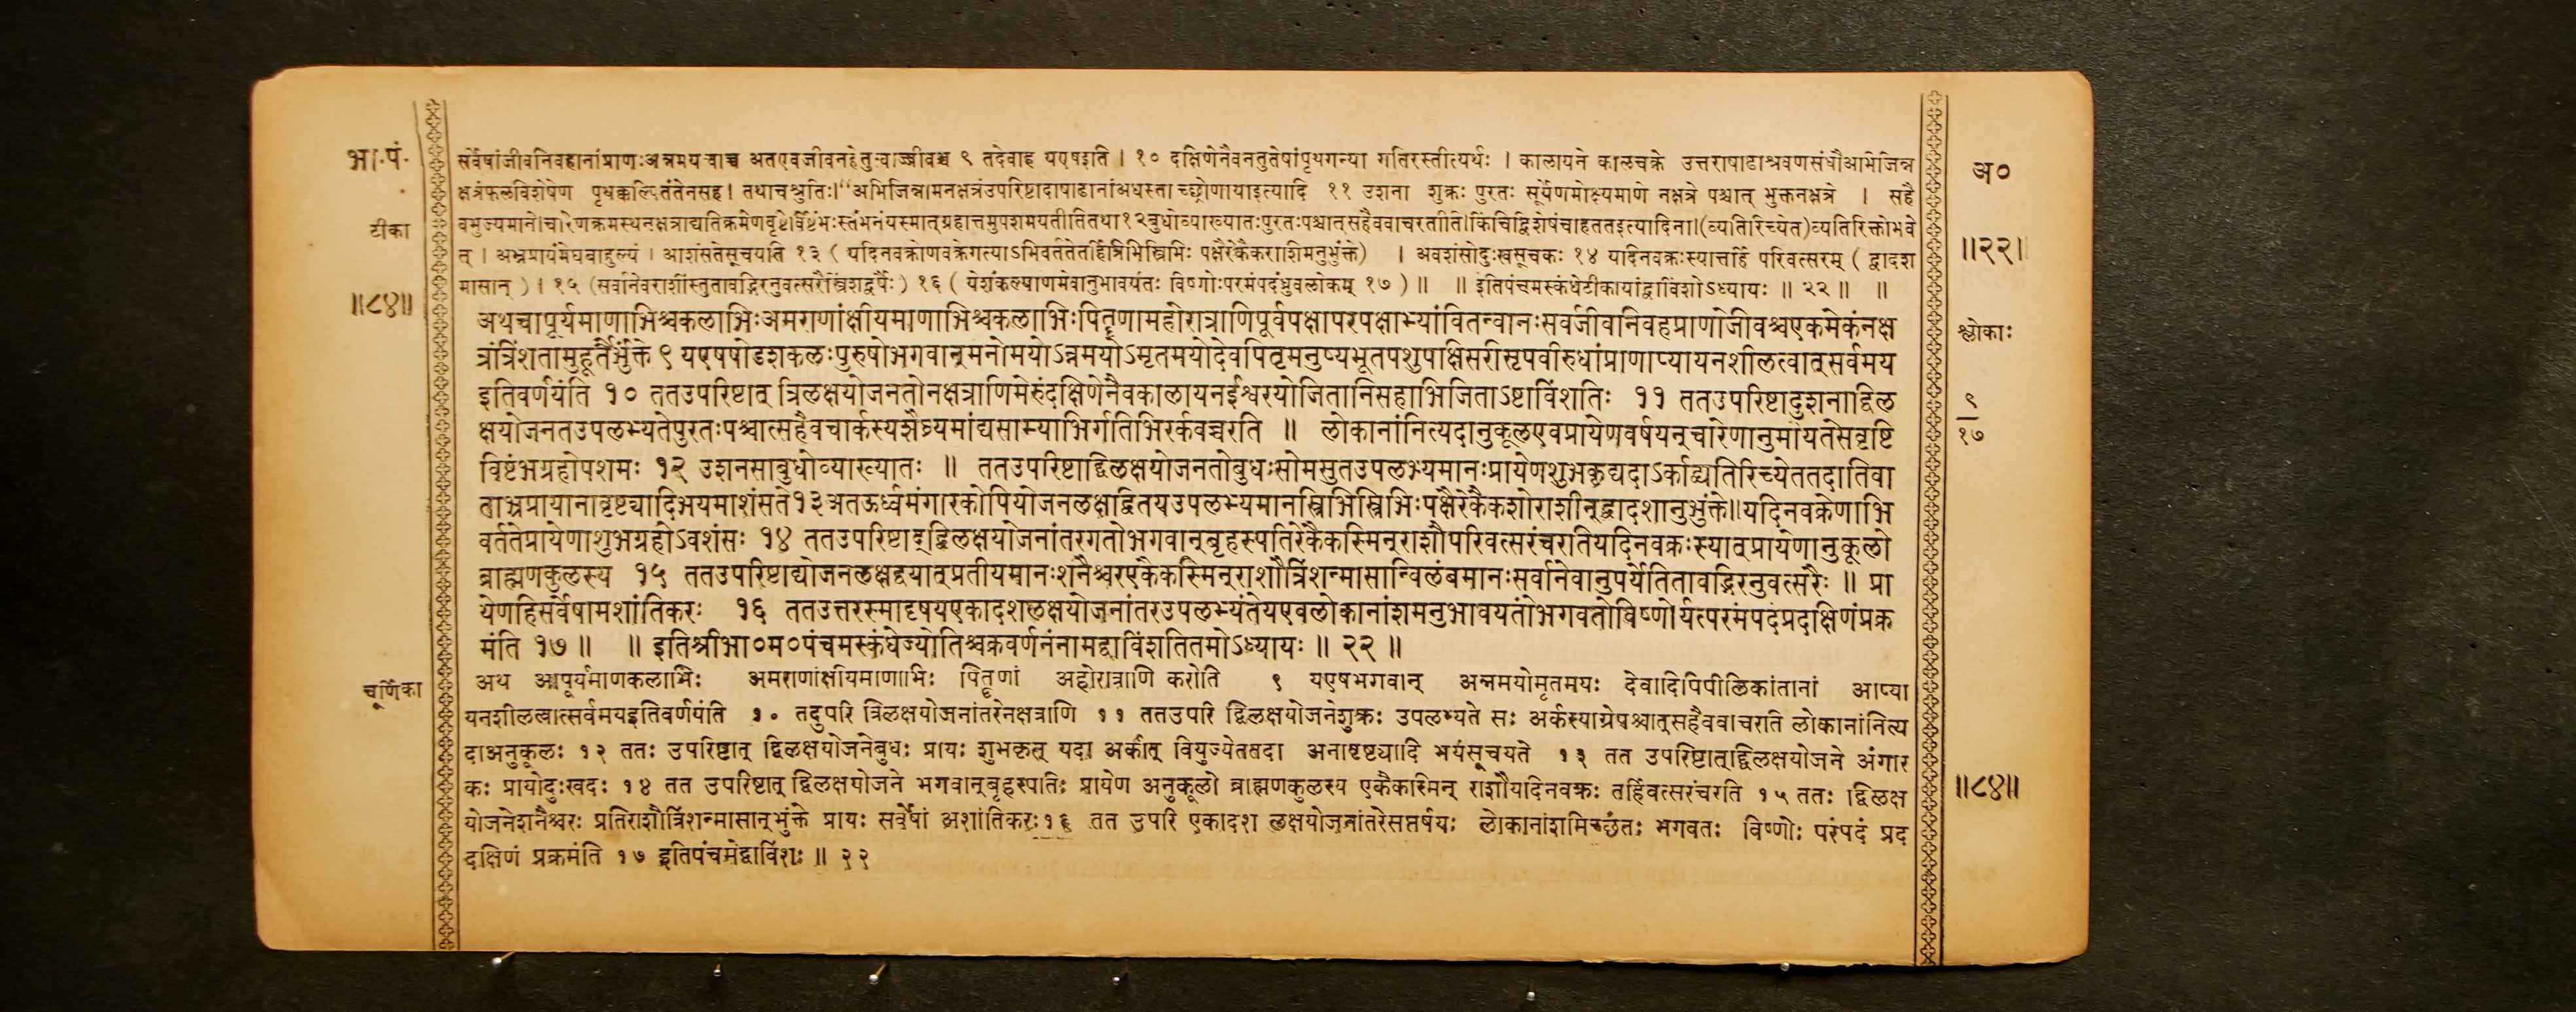 भा.पं.
टीका
॥८४॥
चूर्णिका
सर्वेषांजीवनिवहानांप्राणःअन्नमयत्वाच्च अतएवजीवनहेतुत्वाज्जीवश्च ९ तदेवाह यएषइति । १० दक्षिणेनैवनतुतेषांपृथगन्या गतिरस्तीत्यर्थः । कालायने कालचक्रे उत्तराषाढाश्रवणसंधौअभिजिन्न
क्षत्रंफलविशेषेण पृथक्कल्पितंतेनसह। तथाचश्रुतिः।“अभिजिन्नामनक्षत्रंउपरिष्टादाषाढानांअधस्ताच्छ्रोणायाइत्यादि ११ उशना शुक्रः पुरतः सूर्येणमोक्ष्यमाणे नक्षत्रे पश्चात् भुक्तनक्षत्रे । सहै
वभुज्यमाने।चारेणक्रमस्थनक्षत्राद्यतिक्रमेणवृष्टेर्विष्टंभःस्तंभनंयस्मात्ग्रहात्तमुपशमयतीतितथा१२बुधोव्याख्यातःपुरतःपश्चात्सहैववाचरतीति।किंचिद्विशेषंचाहततइत्यादिना।(व्यतिरिच्येत)व्यतिरिक्तोभवे
त् । अभ्रप्रायंमेघबाहुल्यं । आशंसतेसूचयति १३ ( यदिनवक्रेणवक्रगत्याऽभिवर्ततेतर्हित्रिभिस्त्रिभिः पक्षैरेकैकराशिमनुभुंक्ते) । अवशंसोदुःखसूचकः १४ यदिनवक्रःस्यात्तर्हि परिवत्सरम् ( द्वादश
मासान् ) । १५ (सर्वानेवराशींस्तुतावद्भिरनुवत्सरैस्त्रिंशद्वर्षैः) १६ ( येशंकल्याणमेवानुभावयंतः विष्णोःपरमंपदंध्रुवलोकम् १७ ) ॥ ॥ इतिपंचमस्कंधेटीकायांद्वाविंशोऽध्यायः ॥ २२ ॥ ॥
अथचापूर्यमाणाभिश्चकलाभिःअमराणांक्षीयमाणाभिश्चकलाभिःपितॄणामहोरात्राणिपूर्वपक्षापरपक्षाभ्यांवितन्वानःसर्वजीवनिवहप्राणोजीवश्चएकमेकंनक्ष
त्रंत्रिंशतामुहूर्तैर्भुंक्ते ९ यएषषोडशकलःपुरुषोभगवान्मनोमयोऽन्नमयोऽमृतमयोदेवपितृमनुष्यभूतपशुपक्षिसरीसृपवीरुधांप्राणाप्यायनशीलत्वात्सर्वमय
इतिवर्णयंति १० ततउपरिष्टात् त्रिलक्षयोजनतोनक्षत्राणिमेरुंदक्षिणेनैवकालायनईश्वरयोजितानिसहाभिजिताऽष्टाविंशतिः ११ ततउपरिष्टादुशनाद्विल
क्षयोजनतउपलभ्यतेपुरतःपश्चात्सहैवचार्कस्यशैघ्र्यमांद्यसाम्याभिर्गतिभिरर्कवच्चरति ॥ लोकानांनित्यदानुकूलएवप्रायेणवर्षयन्चारेणानुमीयतेसवृष्टि
विष्टंभग्रहोपशमः १२ उशनसाबुधोव्याख्यातः ॥ ततउपरिष्टाद्विलक्षयोजनतोबुधःसोमसुतउपलभ्यमानःप्रायेणशुभकृद्यदाऽर्काद्व्यतिरिच्येततदातिवा
ताभ्रप्रायानावृष्ट्यादिभयमाशंसते१३अतऊर्ध्वमंगारकोपियोजनलक्षद्वितयउपलभ्यमानस्त्रिभिस्त्रिभिःपक्षैरेकैकशोराशीन्द्वादशानुभुंक्ते॥यदिनवक्रेणाभि
वर्ततेप्रायेणाशुभग्रहोऽवशंसः १४ ततउपरिष्टाद्द्विलक्षयोजनांतरगतोभगवान्बृहस्पतिरेकैकस्मिन्राशौपरिवत्सरंचरतियदिनवक्रःस्यात्प्रायेणानुकूलो
ब्राह्मणकुलस्य १५ ततउपरिष्टाद्योजनलक्षद्वयात्प्रतीयमानःशनैश्चरएकैकस्मिन्राशौत्रिंशन्मासान्विलंबमानःसर्वानेवानुपर्येतितावद्भिरनुवत्सरैः ॥ प्रा
येणहिसर्वेषामशांतिकरः १६ ततउत्तरस्मादृषयएकादशलक्षयोजनांतरउपलभ्यंतेयएवलोकानांशमनुभावयंतोभगवतोविष्णोर्यत्परमंपदंप्रदक्षिणंप्रक्र
मंति १७ ॥ ॥ इतिश्रीभा०म०पंचमस्कंधेज्योतिश्चक्रवर्णनंनामद्वाविंशतितमोऽध्यायः ॥ २२ ॥
अथ आपूर्यमाणकलाभिः अमराणांक्षीयमाणाभिः पितॄणां अहोरात्राणि करोति ९ यएषभगवान् अन्नमयोमृतमयः देवादिपिपीलिकांतानां आप्या
यनशीलत्वात्सर्वमयइतिवर्णयंति १० तदुपरि त्रिलक्षयोजनांतरेनक्षत्राणि ११ ततउपरि द्विलक्षयोजनेशुक्रः उपलभ्यते सः अर्कस्याग्रेपश्चात्सहैववाचरति लोकानांनित्य
दाअनुकूलः १२ ततः उपरिष्टात् द्विलक्षयोजनेबुधः प्रायः शुभकृत् यदा अर्कात् वियुज्येततदा अनावृष्ट्यादि भयंसूचयते १३ तत उपरिष्टात्द्विलक्षयोजने अंगार
कः प्रायोदुःखदः १४ तत उपरिष्टात् द्विलक्षयोजने भगवान्बृहस्पतिः प्रायेण अनुकूलो ब्राह्मणकुलस्य एकैकस्मिन् राशौयदिनवक्रः तर्हिवत्सरंचरति १५ ततः द्विलक्ष
योजनेशनैश्चरः प्रतिराशौत्रिंशन्मासान्भुंक्ते प्रायः सर्वेषां अशांतिकरः१६ तत उपरि एकादश लक्षयोजनांतरेसप्तर्षयः लोकानांशमिच्छंतः भगवतः विष्णोः परंपदं प्रद
दक्षिणं प्रक्रमंति १७ इतिपंचमेद्वाविंशः ॥ २२
अ०
॥२२॥
श्लोकाः
९
१७
॥८४॥